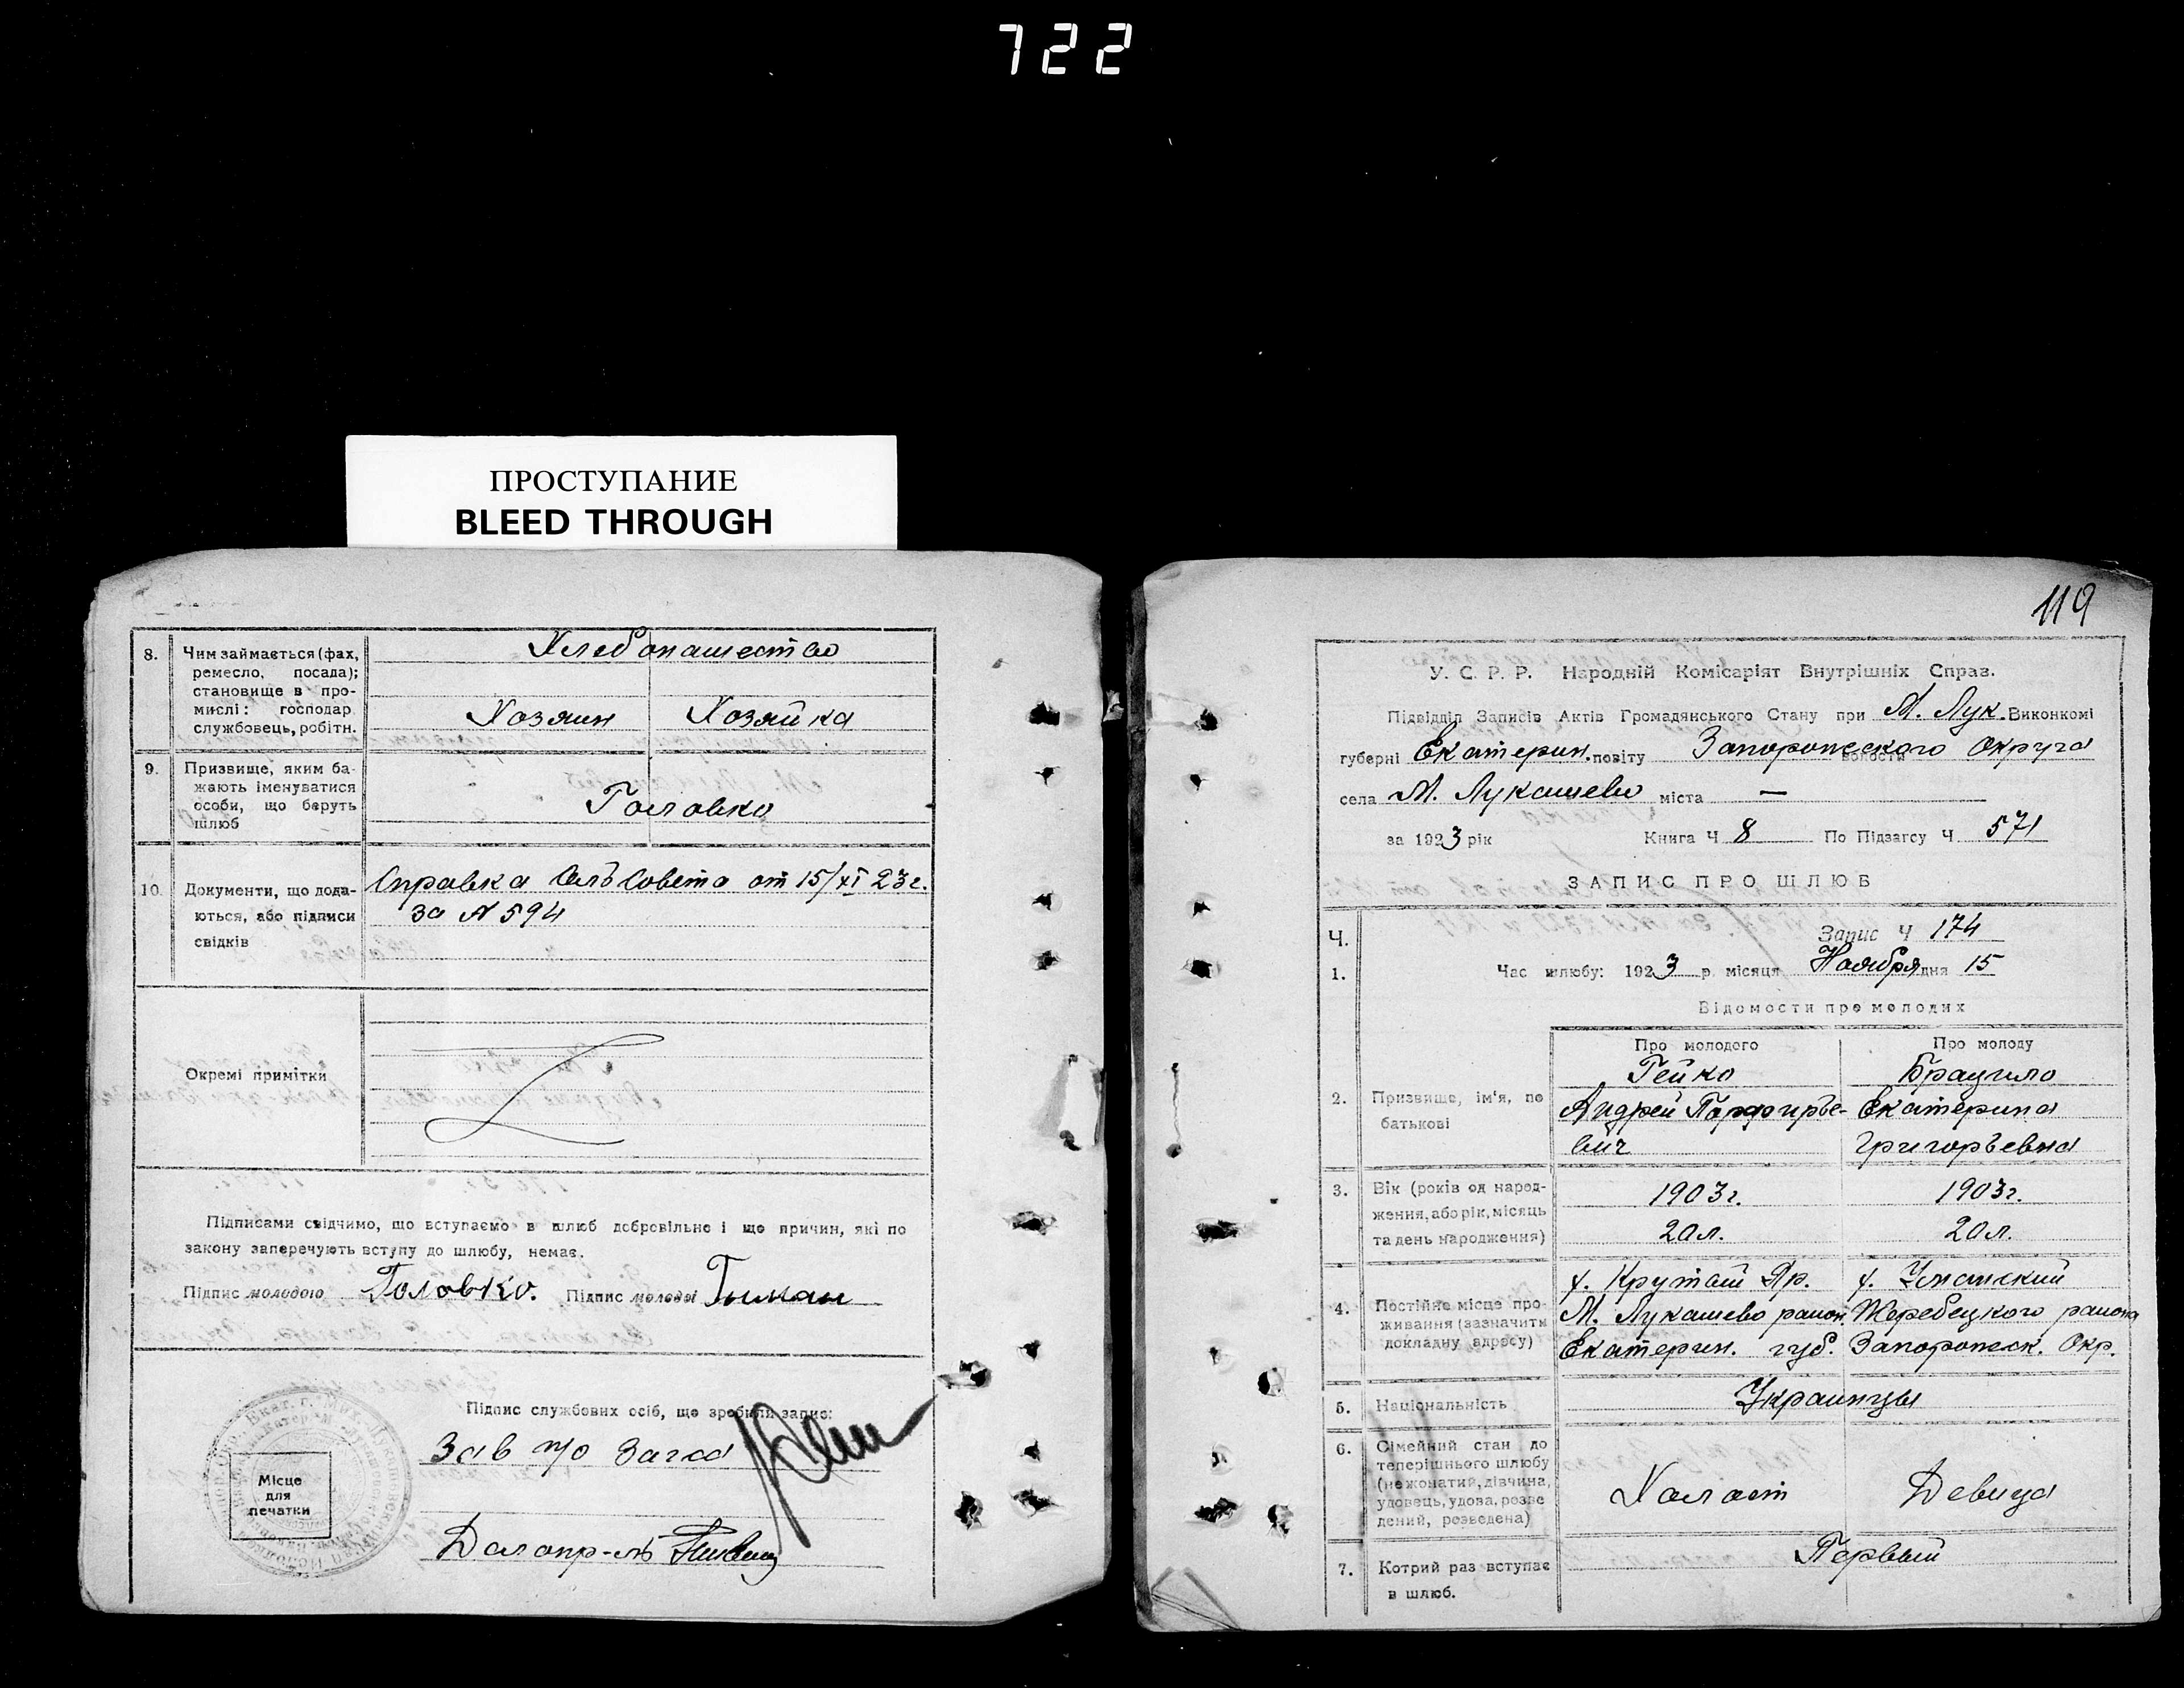 722
ПРОСТУПАНИЕ
BLEED THROUGH
8. Чим займається (фах,
ремесло, посада);
становище в про-
мислі: господар
службовець, робітн.
Хлебопашество
Хозяин Хозяйка
9. Призвище, яким ба-
жають іменуватися
особи, що беруть
шлюб
Головко
10. Документи, що дода-
ються, або підписи
свідків
Справка СельСовета от 15/XI 23г.
за № 594
Окремі примітки
Підписами свідчимо, що вступаємо в шлюб добровільно і що причин, які по
закону заперечують вступу до шлюбу, немає.
Підпис молодого Головко. Підпис молодої
Підпис службових осіб, що зробили запис:
Зав п/о Загса
Місце
для
печатки
Делопр-ль
119
У. С. Р. Р. Народній Комісаріят Внутрішніх Справ.
Підвідділ Записів Актів Громадянського Стану при М. Лук. Виконкомі
губерні Екатерин. повіту Запорожского Округа волости
села М. Лукашево міста —
за 1923 рік Книга Ч 8 По Підзагсу Ч 571
ЗАПИС ПРО ШЛЮБ
Ч. Запис Ч 174
1. Час шлюбу: 1923 р. місяця Ноября дня 15
Відомости про молодих
Про молодого Про молоду
2. Призвище, ім'я, по
батькові
Гейко
Андрей Порфирье-
вич
Екатерина
Григорьевна
3. Вік (років од народ-
ження, або рік, місяць
та день народження)
1903г. 1903г.
20 л. 20 л.
4. Постійне місце про-
живання (зазначити
докладну адресу)
х. Крутой Яр. х. Уманский
М. Лукашево район. Жеребецкого района
Екатерин. губ. Запорожск. Окр.
5. Національність
Украинцы
6. Сімейний стан до
теперішнього шлюбу
(нежонатий, дівчина,
удовець, удова, розве
дений, розведена)
Холост Девица
7. Котрий раз вступає
в шлюб.
Первый